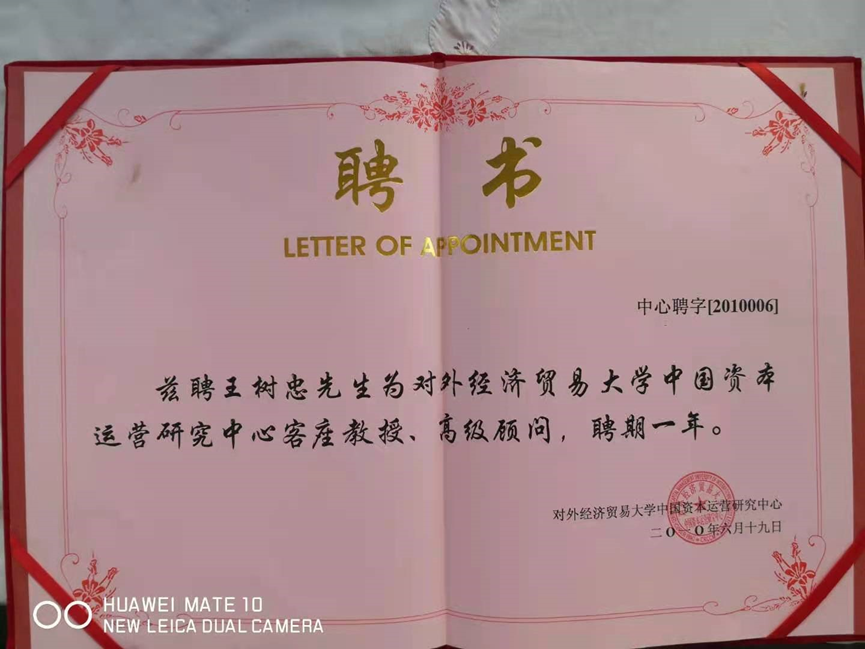 聘书
LETTER OF APPOINTMENT
中心聘字[2010006]
兹聘王树忠先生为对外经济贸易大学中国资本
运营研究中心客座教授、高级顾问，聘期一年。
对外经济贸易大学中国资本运营研究中心
二O O年六月十九日
HUAWEI MATE 10
NEW LEICA DUAL CAMERA